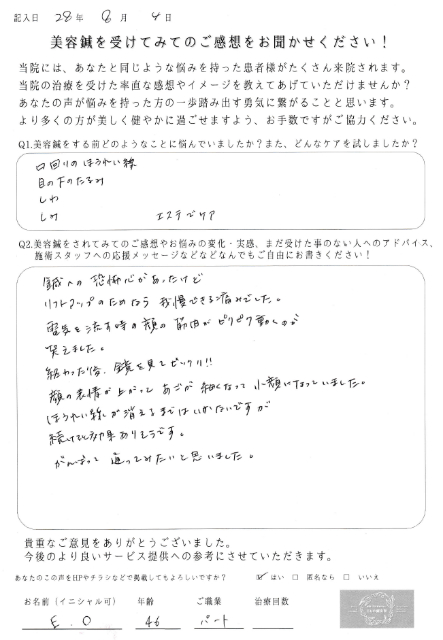 記入日 28年 8月 4日
美容鍼を受けてみてのご感想をお聞かせください！
当院には、あなたと同じような悩みを持った患者様がたくさん来院されます。
当院の治療を受けた率直な感想やイメージを教えてあげていただけませんか？
あなたの声が悩みを持った方の一歩踏み出す勇気に繋がることと思います。
より多くの方が美しく健やかに過ごせますよう、お手数ですがご協力ください。
Q1.美容鍼をする前どのようなことに悩んでいましたか？また、どんなケアを試しましたか？
口回りのほうれい線
目の下のたるみ
しわ
しみ エステでケア
Q2.美容鍼をされてみてのご感想やお悩みの変化・実感、まだ受けた事のない人へのアドバイス、
施術スタッフへの応援メッセージなどなどなんでもご自由にお書きください！
鍼への恐怖心があったけど
リフトアップのためなら我慢できる痛みでした。
電気を流す時の顔の筋肉がピクピク動くので
笑えました。
終わった後、鏡を見てビックリ!!
顔の表情が上がって あごが細くなって小顔になっていました。
ほうれい線が消えるまではいかないですが
続けて効果ありそうです。
がんばって通ってみたいと思いました。
貴重なご意見をありがとうございました。
今後のより良いサービス提供への参考にさせていただきます。
あなたのこの声をHPやチラシなどで掲載してもよろしいですか？ ☑ はい □ 匿名なら □ いいえ
お名前（イニシャル可） 年齢 ご職業 治療回数
E.O 46 パート